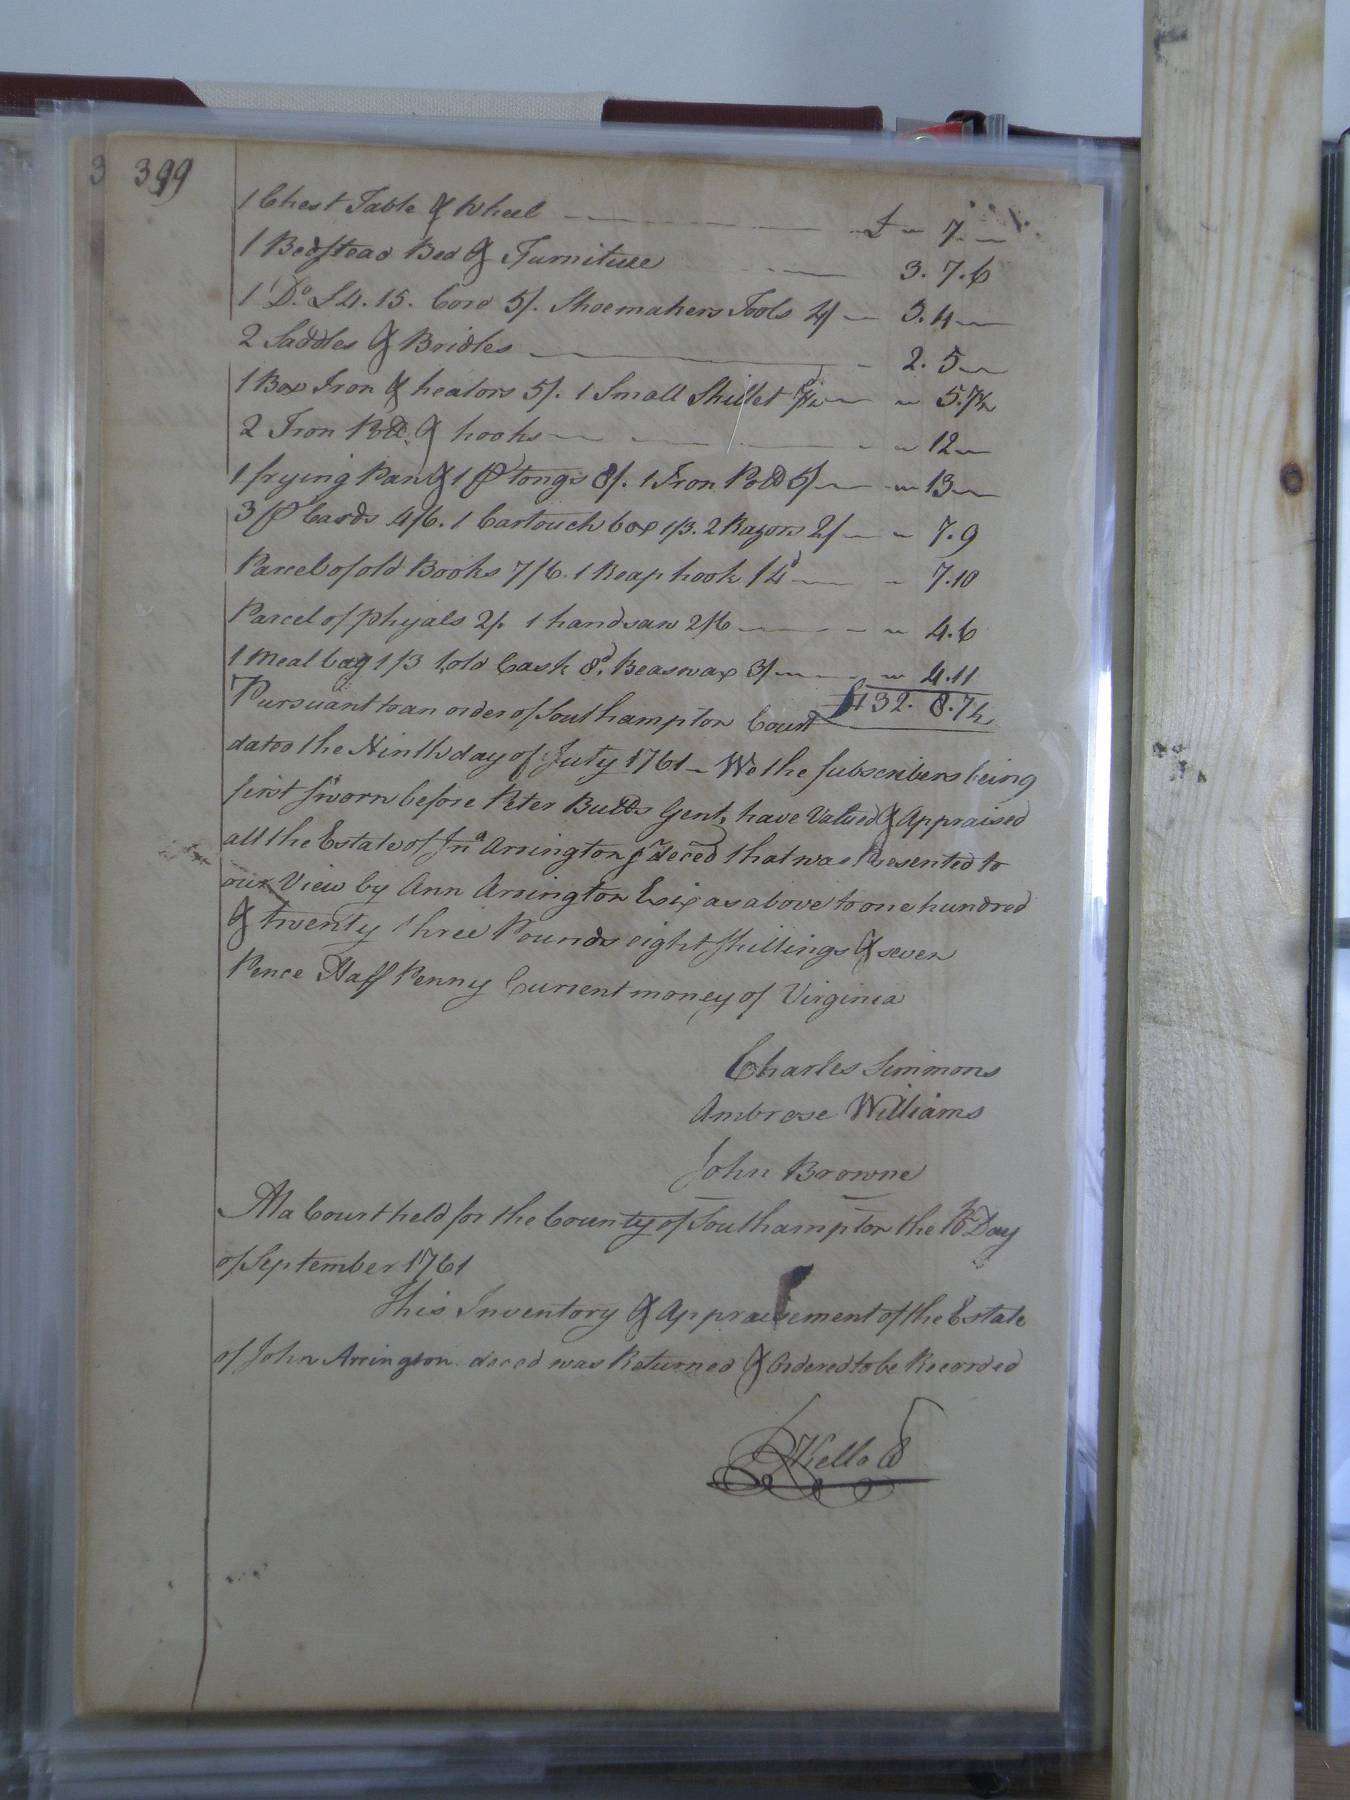 3 399
1 Chest Table & Wheel £ " 7 "
1 Bedstead Bed & Furniture 3. 7. 6
1 Do. £4. 15. Cord 5/. Shoemakers Tools 4/ 5. 4
2 Saddles & Bridles 2. 5
1 Box Iron & heators 5/. 1 Small Skillet 7½ " 5. 7½
2 Iron Potts & hooks " 12
1 frying Pan & 1 pr tongs 8/. 1 Iron Pott 5/ " 13
3 pr Cards 4/6. 1 Cartouch box 1/3. 2 Razors 2/ " 7. 9
Parcel of old Books 7/6. 1 Reap hook 4d " 7. 10
Parcel of Phyals 2/. 1 handsaw 2/6 " 4. 6
1 Meal bag 1/3 1 old Cask 8d. Beaswax 3/ " 4. 11
Pursuant to an order of Southampton Court £132. 8. 7½
dated the Ninth day of July 1761 - We the Subscribers being
first Sworn before Peter Butts Gent, have Valued & Appraised
all the Estate of Jno Arrington deced that was Presented to
our View by Ann Arrington Exix as above to one hundred
& twenty three Pounds eight Shillings & seven
Pence Half Penny Current money of Virginia
Charles Simmons
Ambrose Williams
John Browne
At a Court held for the County of Southampton the 10th Day
of September 1761
This Inventory & Appraisement of the Estate
of John Arrington deced was Returned & Ordered to be Recorded
Kello